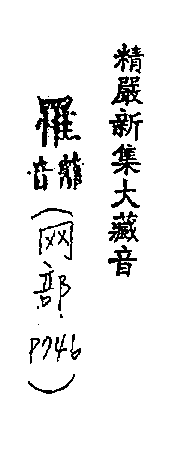 精嚴新集大藏音
罹
音
(网部.P746)